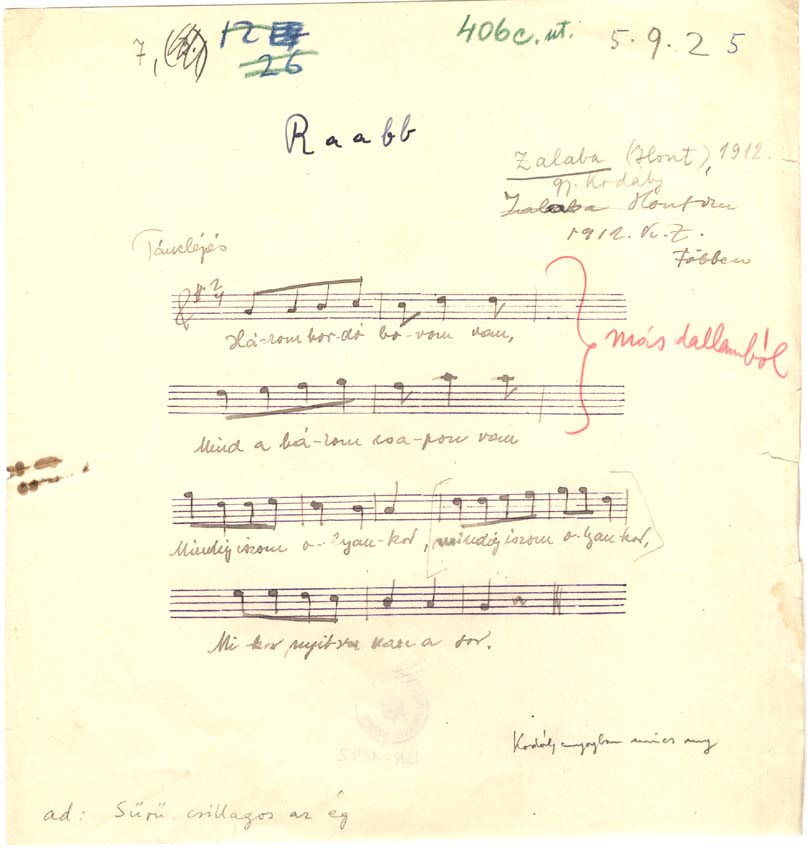 7,
12
26
406c. ut.
5.9.25
Raabb
Zalaba (Hont), 1912.
gy. Kodály
Zalaba Hont vm
1912. K. Z.
Többen
Tánclépés
2/4
Há-rom hor-dó bo-rom van,
más dallamból
Mind a há-rom csa-pon van
Mindig iszom o-lyan-kor, mindig iszom o-lyan-kor,
Mi-kor nyitva van a sor.
Kodály anyagban nincs meg
ad: Sűrű csillagos az ég